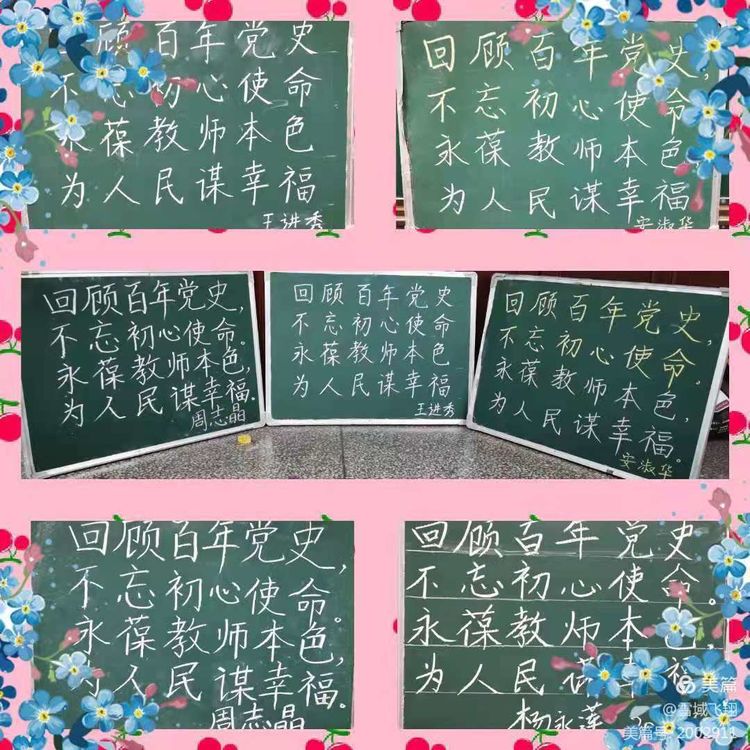 回顾百年党史
不忘初心使命
永葆教师本色
为人民谋幸福
王进秀
回顾百年党史,
不忘初心使命
永葆教师本色
为人民谋幸福
安淑华
回顾百年党史,
不忘初心使命。
永葆教师本色,
为人民谋幸福。
周志晶
回顾百年党史
不忘初心使命
永葆教师本色
为人民谋幸福
王进秀
回顾百年党史,
不忘初心使命。
永葆教师本色,
为人民谋幸福。
安淑华
回顾百年党史,
不忘初心使命。
永葆教师本色,
为人民谋幸福。
周志晶
回顾百年党史
不忘初心使命。
永葆教师本色,
为人民谋幸福
杨永莲
美篇
@雪域飞翔
美篇号: 2002911